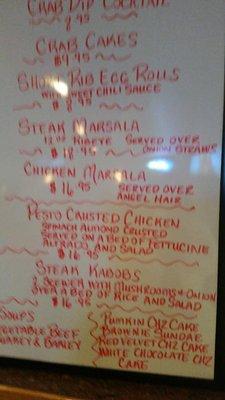 CRAB DIP COCKTAIL
CRAB CAKES
$9.95
SHORT RIB EGG ROLLS
WITH SWEET CHILI SAUCE
STEAK MARSALA
12 OZ RIBEYE SERVED OVER
ONION STRAWS
$18.95
CHICKEN MARSALA
$16.95 SERVED OVER
ANGEL HAIR
PESTO CRUSTED CHICKEN
SPINACH ALMOND CRUSTED
SERVED ON A BED OF FETTUCINE
ALFRADO AND SALAD
$16.95
STEAK KABOBS
SCEWER WITH MUSHROOMS & ONION
OVER A BED OF RICE AND SALAD
$16.95
SOUPS
VEGETABLE BEEF
TURKEY & BARLEY
PUMPKIN CHZ CAKE
BROWNIE SUNDAE
RED VELVET CHZ CAKE
WHITE CHOCOLATE CHZ
CAKE